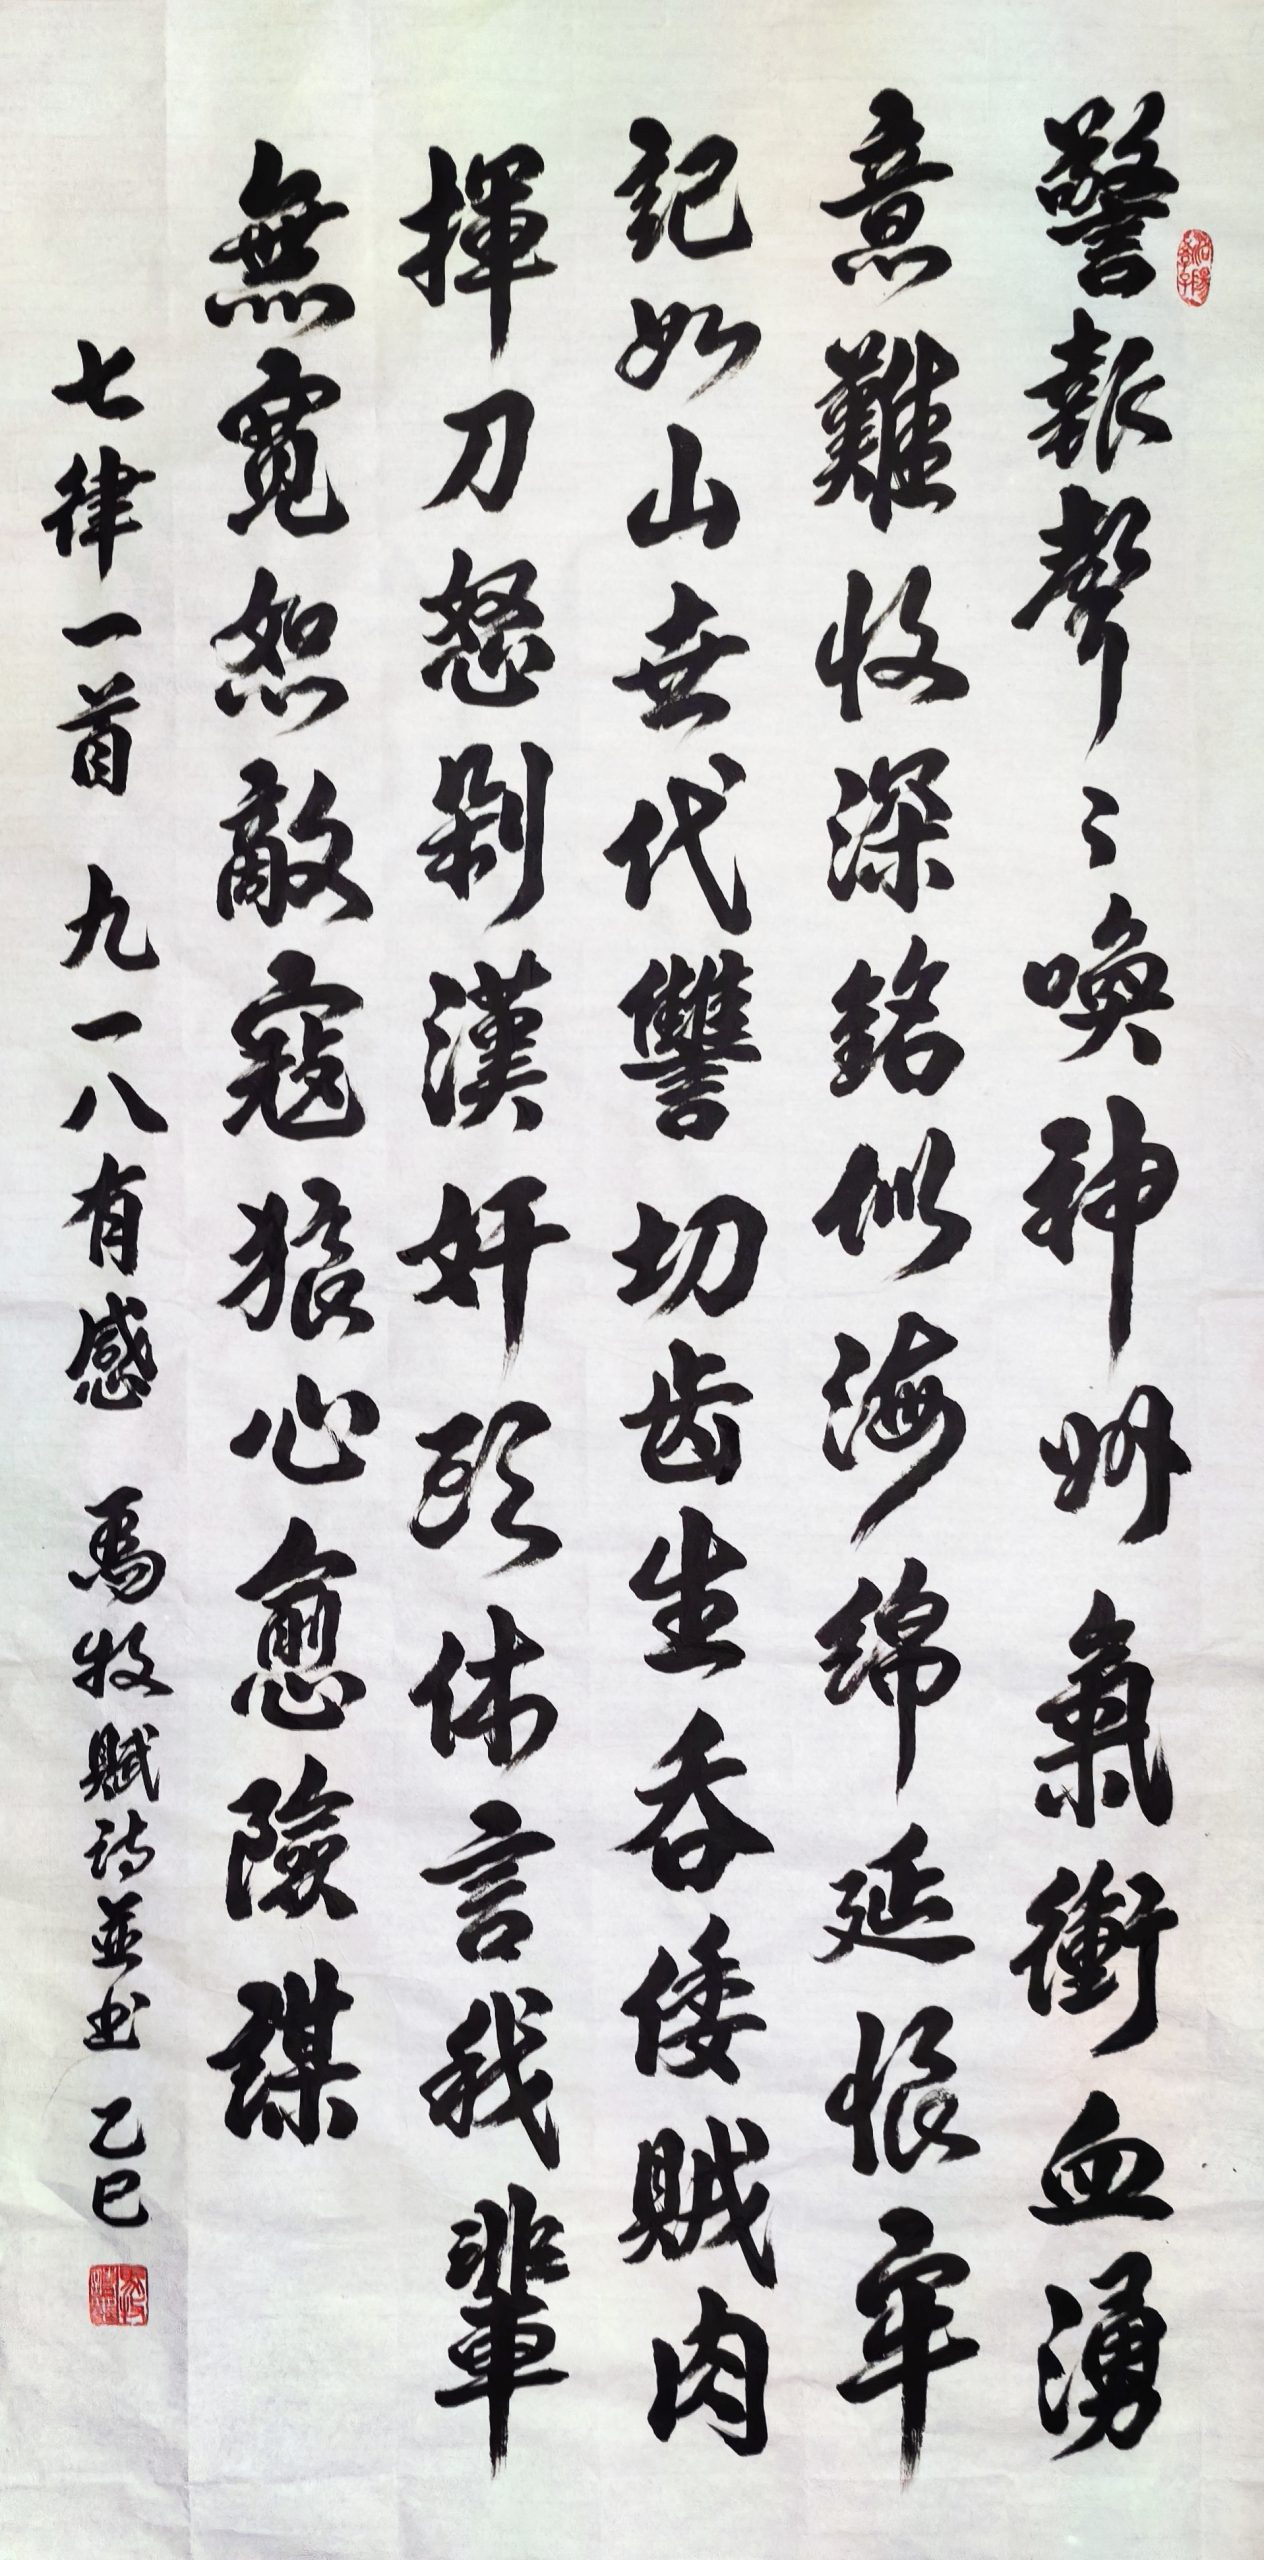 警報聲〻喚神州氣衝血湧
意難收深銘似海綿延恨牢
記如山世代讎切齒生吞倭賊肉
揮刀怒剁漢奸頭休言我輩
無寬恕敵寇狼心愈險謀
七律一首 九一八有感 牧賦诗並书 乙巳